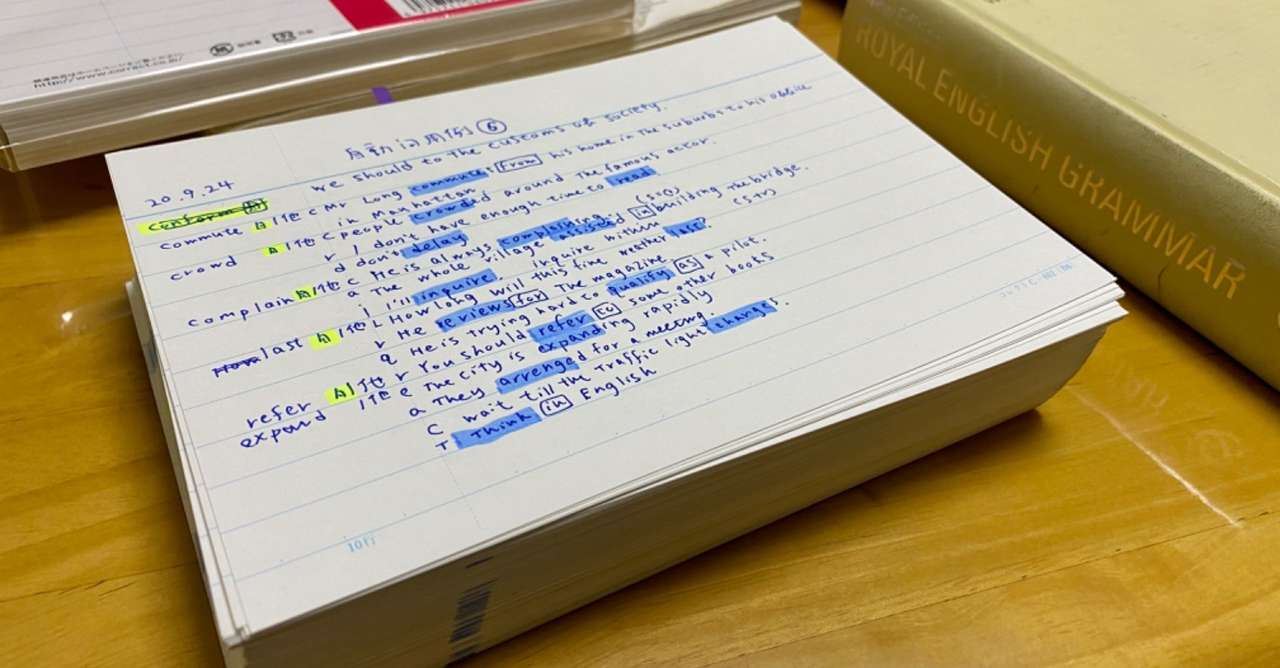 http://www.correct.co.jp/
ROYAL ENGLISH GRAMMAR
自動詞用例⑥
20.9.24
we should to the customs of society.
conform 自
commute 自/他 C Mr Long commutes from his home in the suburbs to his office
in Manhattan
crowd 自/他 C people crowded around the famous actor.
r I don't have enough time to read
d don't delay
complain 自/他 C He is always complaining.
a The whole village assisted in building the bridge.
I I'll inquire. inquire within
last 自/他 L How long will this fine weather last?
r He reviews for The magazine
q He is trying hard to qualify as a pilot.
refer 自/他 r You should refer to some other books
expand /他 e The city is expanding rapidly
a They arrenged for a meeting.
C wait till the Traffic light changes.
T Think in English
10行